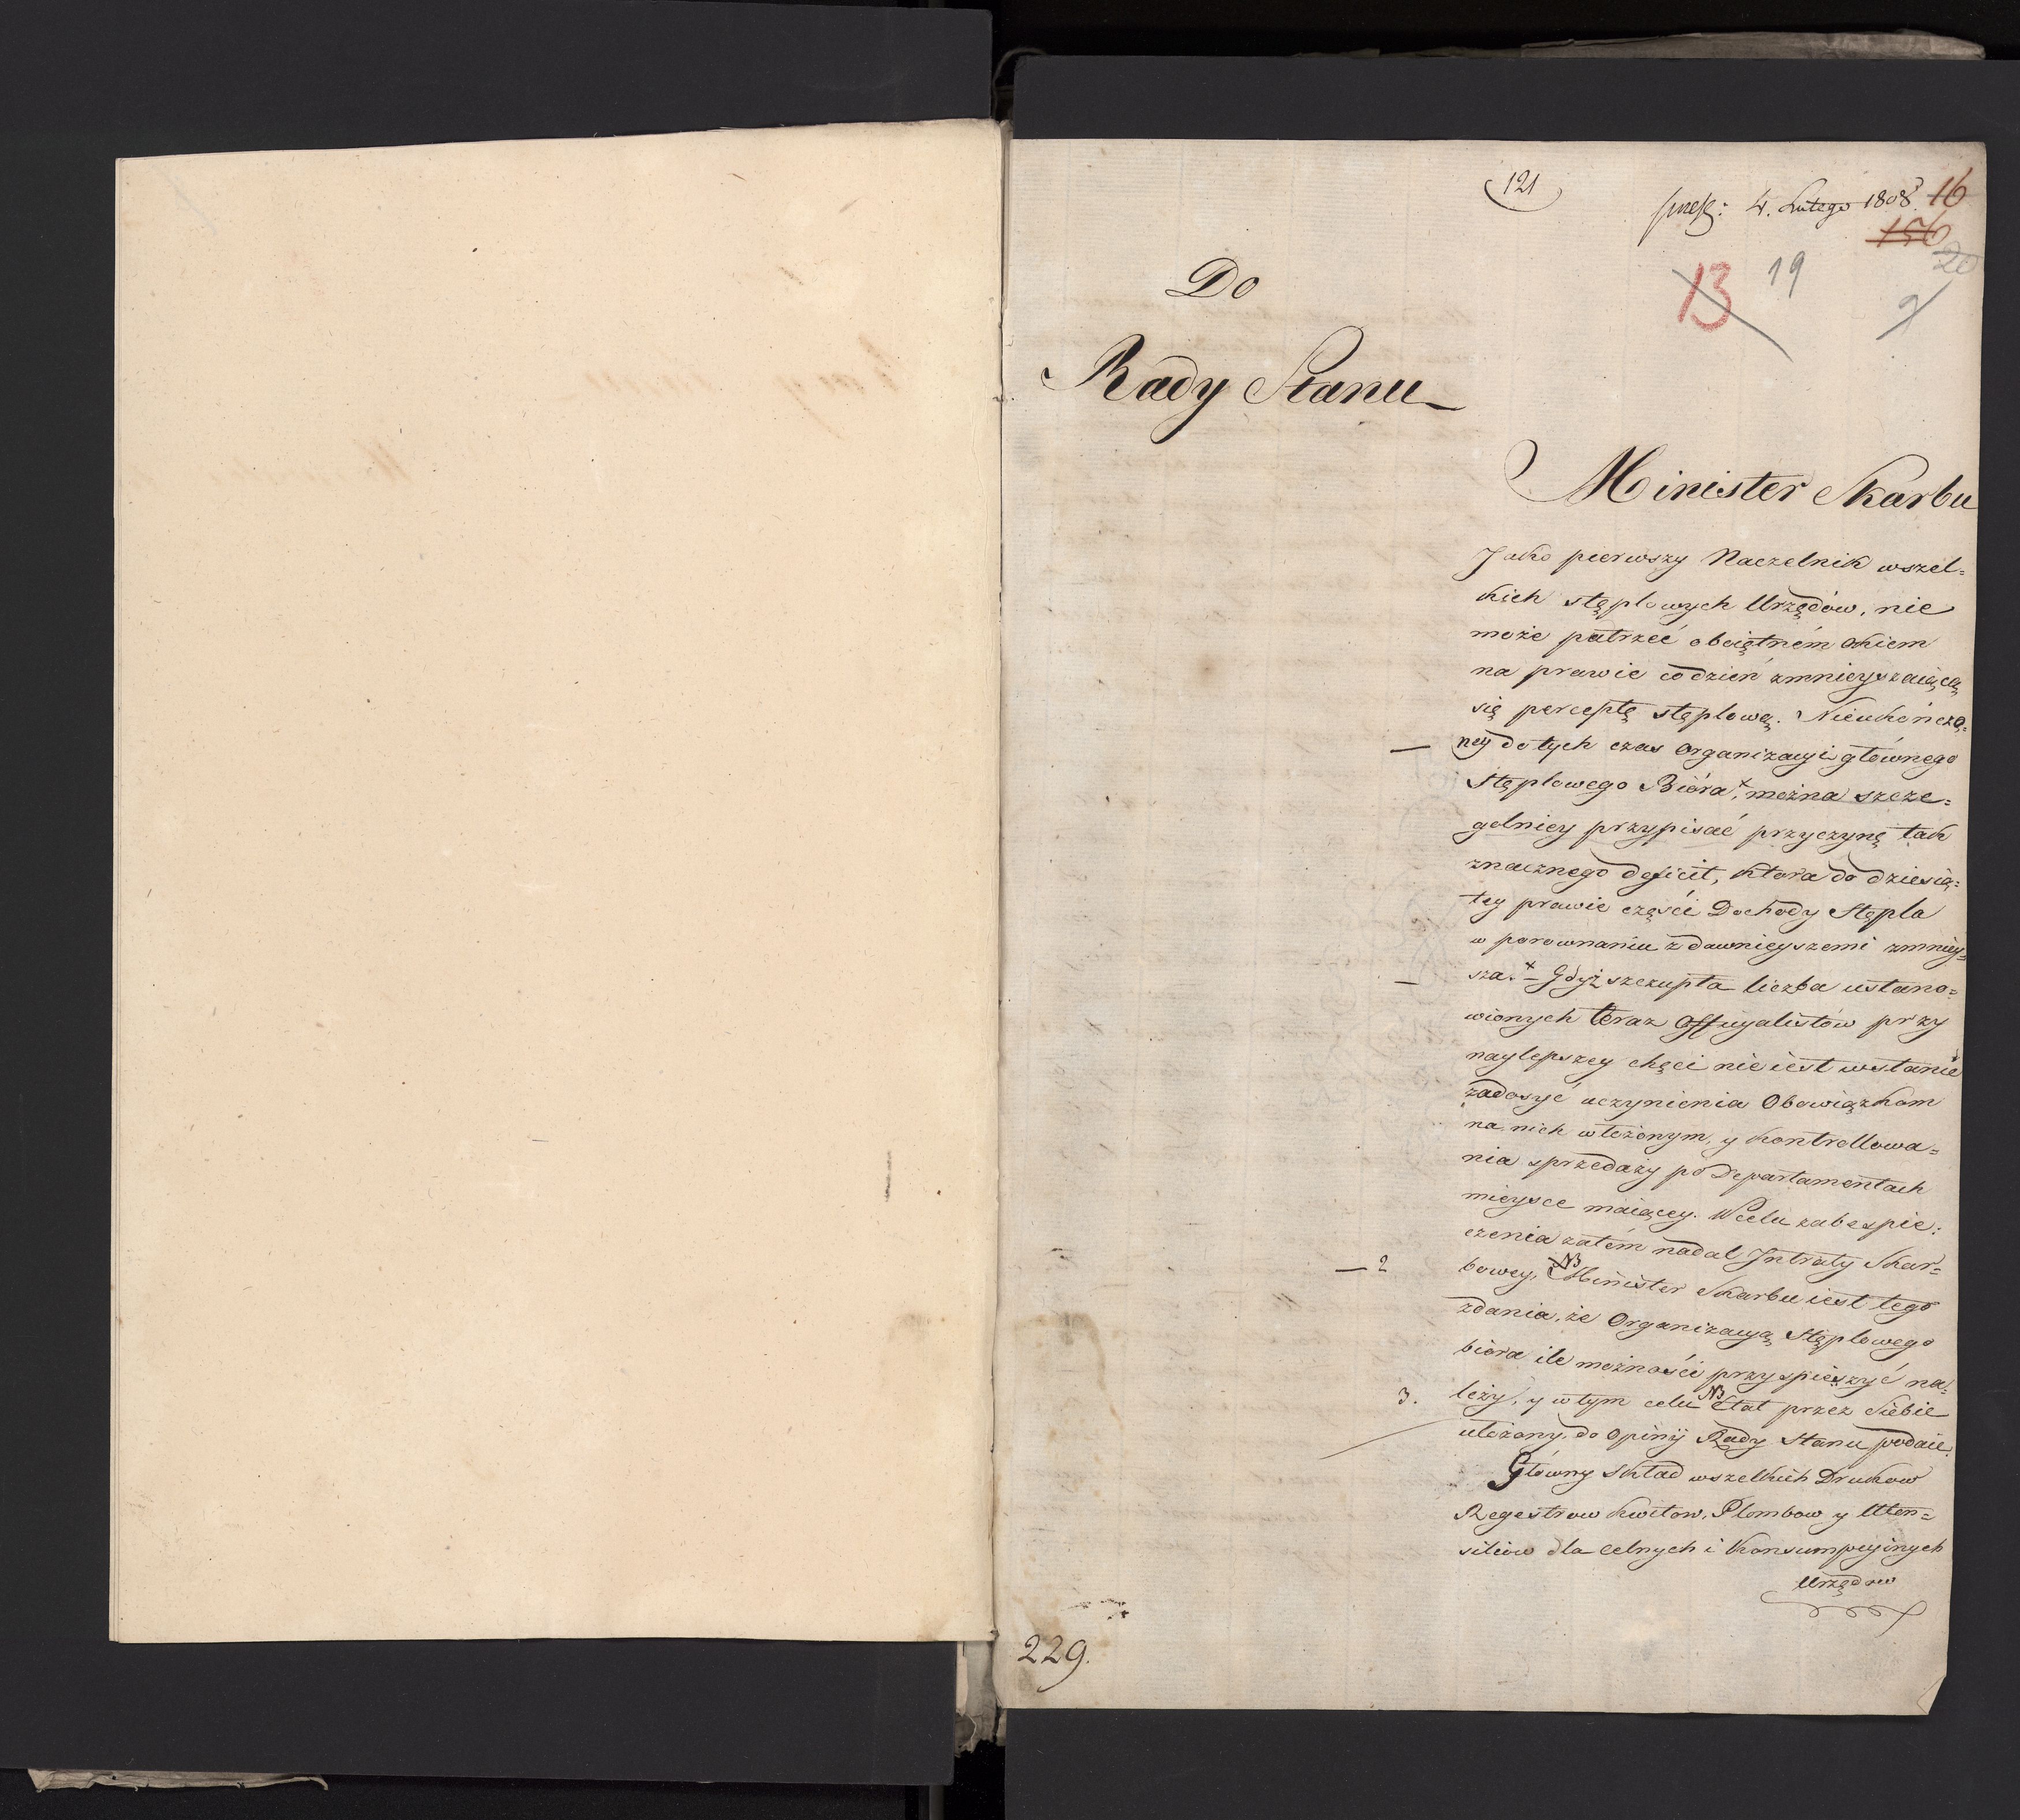 (121)
præs: 4. Lutego 1808. 16
156
20
13 19
9
Do
Rady Stanu
Minister Skarbu
Jako pierwszy Naczelnik wszel=
kich stęplowych Urzędów, nie
może patrzeć obojętném okiem
na prawie codzień zmnieyszaiącą
się perceptę stęplową. Nieukończo=
— ney do tych czas Organizacyi głównego
Stęplowego Bióra, można szcze=
gólniey przypisać przyczynę tak
znacznego deficit, ktora do dziesią=
tey prawie części Dochody Stępla
w porownaniu z dawnieyszemi zmniey=
— sza. – Gdyż szczupła liczba ustano=
wionych teraz Officyalistów przy
naylepszey chęci nie iest wstanie
zadosyć uczynienia Obowiązkom
na nich włożonym, y kontrollowa=
nia sprzedaży po Departamentach
mieysce maiącey. W celu zabespie=
czenia zatém nadal Intraty Skar=
— 2 bowey, NB Minister Skarbu iest tego
zdania, że Organizacyą Stęplowego
bióra ile możności przyspieszyć na=
3. leży, y w tym celu NB Etat przez Siebie
ułożony, do Opinij Rady Stanu podaie.
Główny Skład wszelkich Drukow
Regestrow Kwitow, Plombow y Uten=
siliow dla Celnych i Konsumpcyinych
Urzędow
229.